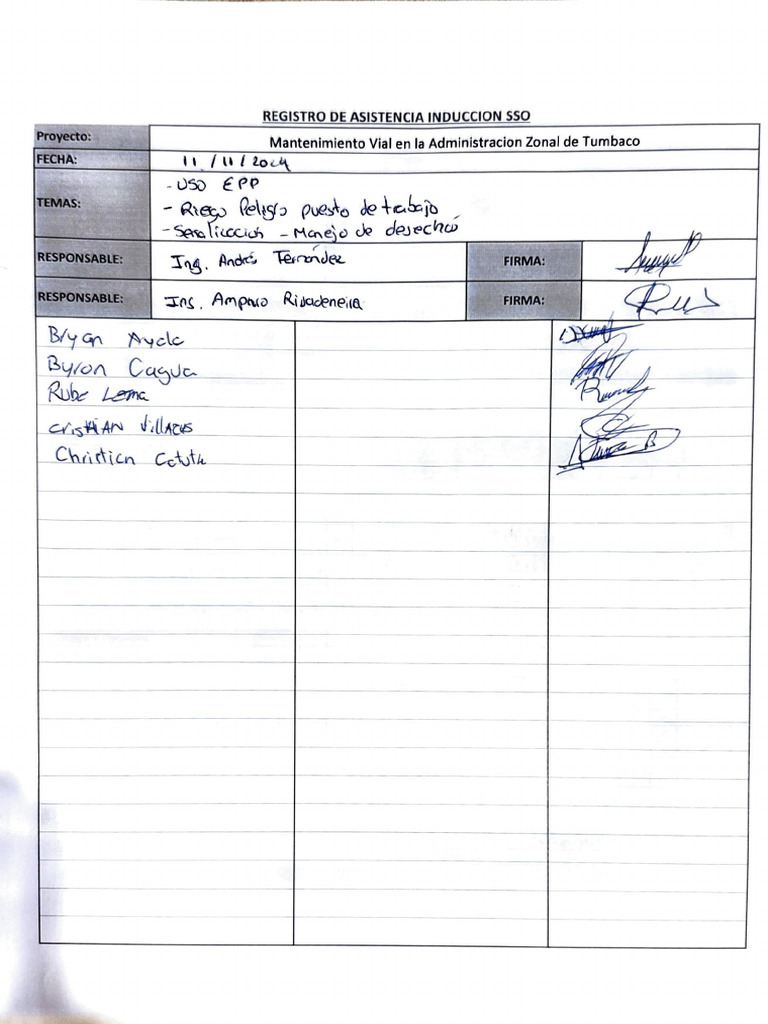 REGISTRO DE ASISTENCIA INDUCCION SSO
Proyecto: Mantenimiento Vial en la Administracion Zonal de Tumbaco
FECHA: 11 / 11 / 2024
TEMAS: - USO EPP
- Riego Peligro puesto de trabajo
- Señalizacion - Manejo de desechos
RESPONSABLE: Ing. Andrés Fernández FIRMA:
RESPONSABLE: Ing. Amparo Rivadeneira FIRMA:
Bryan Ayala
Byron Cagua
Rube Lema
CristiAN Villacis
Christian